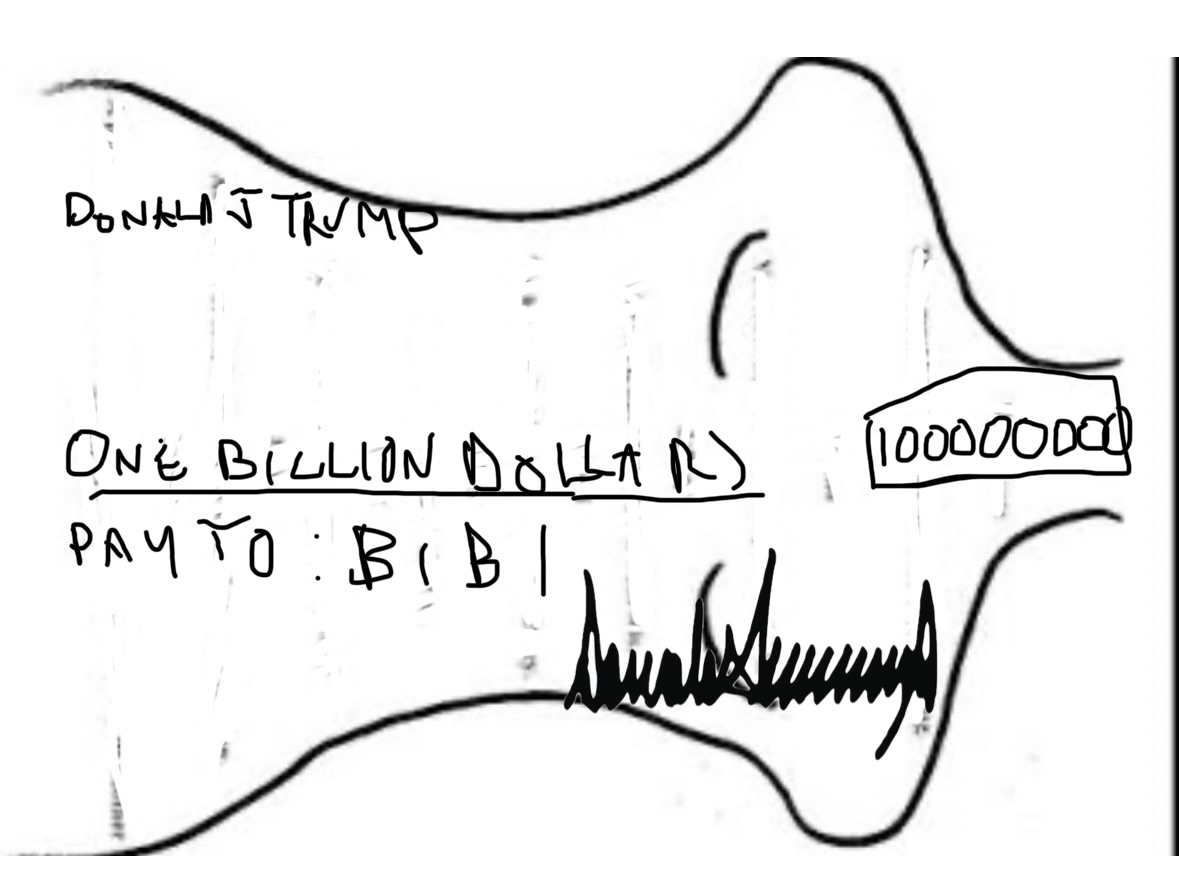 DONALD J TRUMP
1000000000
ONE BILLION DOLLARS
PAY TO : BIBI